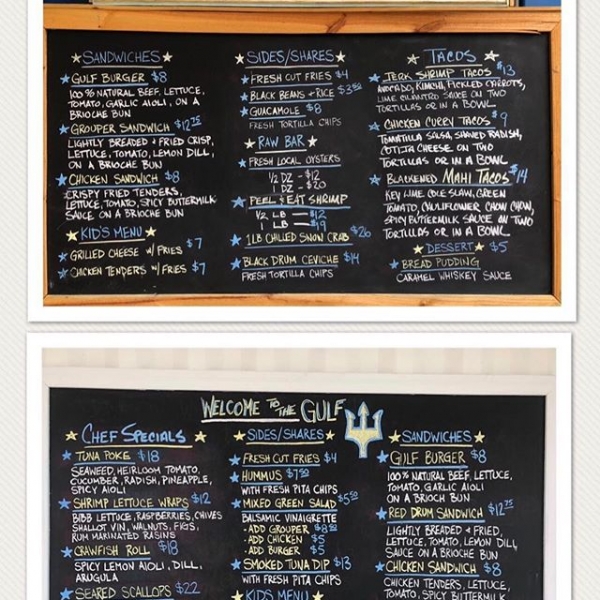 SANDWICHES
GULF BURGER $8
100% NATURAL BEEF, LETTUCE,
TOMATO, GARLIC AIOLI, ON A
BRIOCHE BUN
GROUPER SANDWICH $12.75
LIGHTLY BREADED & FRIED CRISP,
LETTUCE, TOMATO, LEMON DILL,
ON A BRIOCHE BUN
CHICKEN SANDWICH $8
CRISPY FRIED TENDERS,
LETTUCE, TOMATO, SPICY BUTTERMILK
SAUCE ON A BRIOCHE BUN
KID'S MENU
GRILLED CHEESE W/ FRIES $7
CHICKEN TENDERS W/ FRIES $7
SIDES/SHARES
FRESH CUT FRIES $4
BLACK BEANS & RICE $3.50
GUACAMOLE $8
FRESH TORTILLA CHIPS
RAW BAR
FRESH LOCAL OYSTERS
1/2 DZ - $12
1 DZ - $20
PEEL & EAT SHRIMP
1/2 LB - $12
1 LB - $19
1LB CHILLED SNOW CRAB $26
BLACK DRUM CEVICHE $14
FRESH TORTILLA CHIPS
TACOS
JERK SHRIMP TACOS $13
AVOCADO, KIMCHI, PICKLED CARROTS,
LIME CILANTRO SAUCE ON TWO
TORTILLAS OR IN A BOWL
CHICKEN CURRY TACOS $9
TOMATILLA SALSA, SHAVED RADISH,
COTIJTA CHEESE ON TWO
TORTILLAS OR IN A BOWL
BLACKENED MAHI TACOS $14
KEY LIME COLE SLAW, GREEN
TOMATO, CAULIFLOWER CHOW CHOW,
SPICY BUTTERMILK SAUCE ON TWO
TORTILLAS OR IN A BOWL
DESSERT $5
BREAD PUDDING
CARAMEL WHISKEY SAUCE
WELCOME TO THE GULF
CHEF SPECIALS
TUNA POKE $18
SEAWEED, HEIRLOOM TOMATO,
CUCUMBER, RADISH, PINEAPPLE,
SPICY AIOLI
SHRIMP LETTUCE WRAPS $12
BIBB LETTUCE, RASPBERRIES, CHIVES
SHALLOT VIN, WALNUTS, FIGS,
RUM MARINATED RAISINS
CRAWFISH ROLL $18
SPICY LEMON AIOLI, DILL,
ARUGULA
SEARED SCALLOPS $22
SIDES/SHARES
FRESH CUT FRIES $4
HUMMUS $7.50
WITH FRESH PITA CHIPS
MIXED GREEN SALAD $5.50
BALSAMIC VINAIGRETTE
- ADD GROUPER $8.50
- ADD CHICKEN $5
- ADD BURGER $5
SMOKED TUNA DIP $13
WITH FRESH PITA CHIPS
KIDS MENU
SANDWICHES
GULF BURGER $8
100% NATURAL BEEF, LETTUCE,
TOMATO, GARLIC AIOLI
ON A BRIOCH BUN
RED DRUM SANDWICH $12.75
LIGHTLY BREADED & FRIED,
LETTUCE, TOMATO, LEMON DILL
SAUCE ON A BRIOCHE BUN
CHICKEN SANDWICH $8
CHICKEN TENDERS, LETTUCE,
TOMATO, SPICY BUTTERMILK